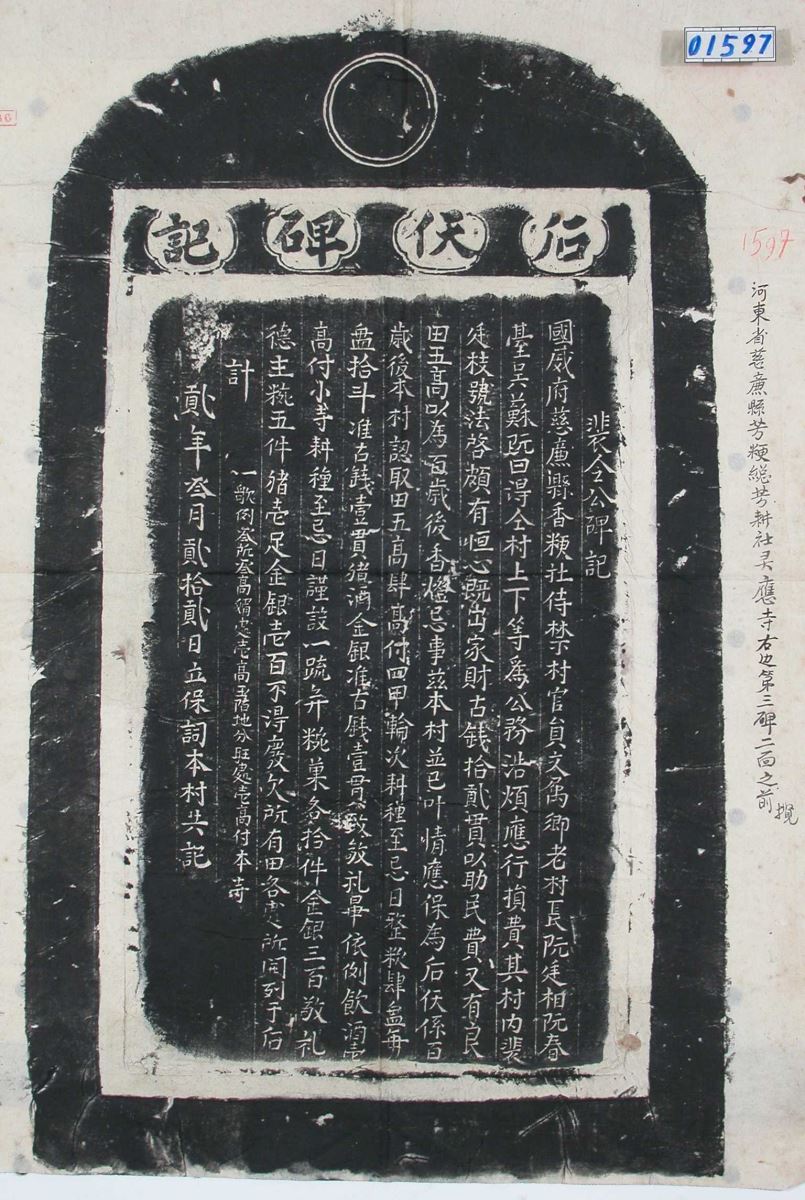 01597
1597
后伕碑記
裴令公碑記
國威府慈廉縣香粳社侍禁村官員文屬鄉老村長阮廷相阮春
臺吳蘇阮曰得仝村上下等爲公務浩煩應行損費其村内裴
廷枝號法啓頗有恒心既出家財古錢拾貳貫以助民費又有良
田五高以為百歲後香燈忌事茲本村並已叶情應保為后伕係百
歲後本村認取田五高肆高付四甲輪次耕種至忌日整粢肆盘每
盘拾斗准古錢壹貫猪酒金銀准古錢壹貫敬礼畢依例飲酒壹
高付小寺耕種至忌日謹設一疏弁粢菓各拾件金銀三百敬礼
德主粢五件猪壱足金銀壱百不得廢欠所有田各處所開列于后
計
一歇例叁所叁高堛忠壱高圣階地分旺處壱高付本寺
貳年叁月貳拾貳日立保詞本村共記
河東省慈廉縣芳粳總芳耕社灵應寺右边第三碑二面之前
攪